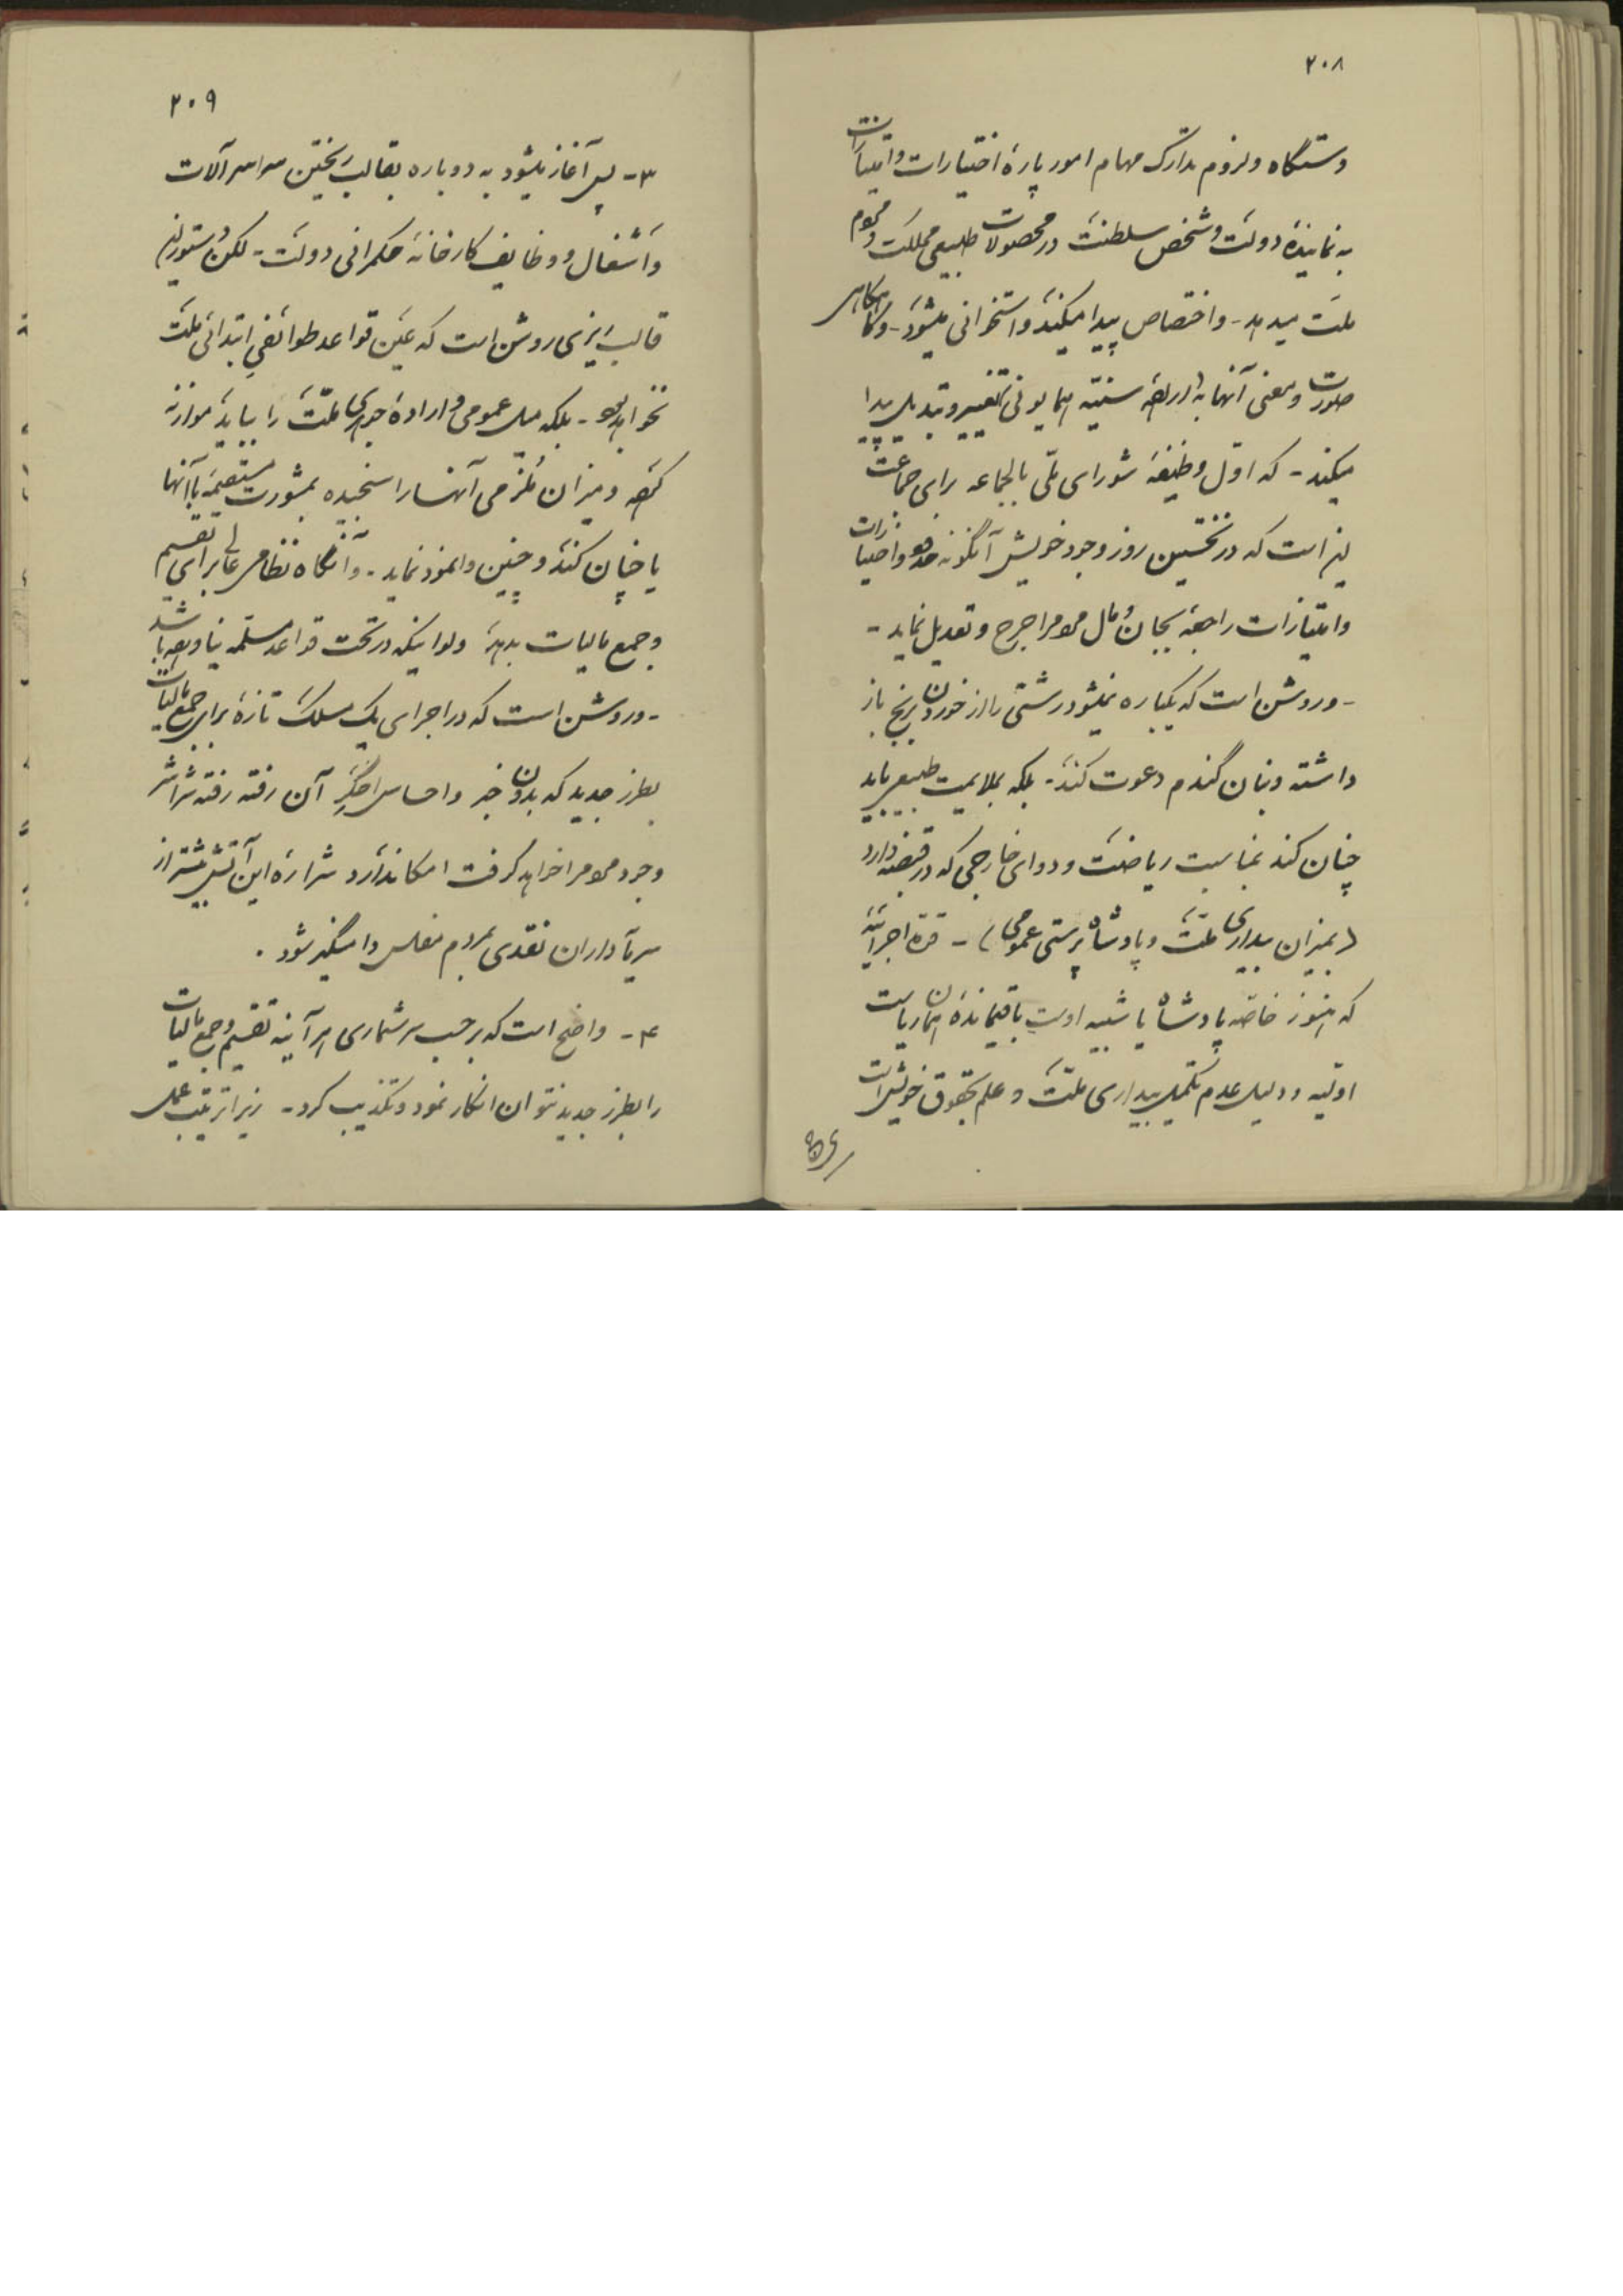 ۲۰۸
دستگاه و لزوم تدارک مهام امور پارهٔ اختیارات و امتیازات
به نمایندهٔ دولت و شخص سلطنت در محصولات طبیعی مملکت و قوم
ملت میدهد - و اختصاص پیدا میکند و استخوانی میشود - و گاه گاهی
صورت و معنی آنها به ارادهٔ سنیّه همایونی تغییر و تبدیل پیدا
میکند - که اوّل وظیفهٔ شورای ملّی بالجماعه برای جماعت
نیز است که در نخستین روز وجود خویش آنگونه حقوق و اختیارات
و امتیازات راجعه بجان و مال مردم را جرح و تعدیل نماید -
- و روشن است که یکباره نمیشود رشتی را از خوردن برنج باز
داشته و بنان گندم دعوت کند - بلکه بملایمت طبیعی باید
چنان کند بمناسبت ریاضت و دوای خارجی که در قبضه دارد
(بمیزان بیداری ملت و پادشاه پرستی عمومی) - قوهٔ اجرائیه
که هنوز خاصّه پادشاه یا شبیه اوست باقیماندهٔ همان ریاست
اولیه و دلیل عدم تکمیل بیداری ملّت و علم بحقوق خویش است
۲۰۹
۳- پس آغاز میشود به دوباره بقالب ریختن سراسر آلات
و اشغال و وظایف کارخانهٔ حکمرانی دولت - لکن دستور این
قالب ریزی روشن است که عین قواعد طوائفی ابتدائی ملت
نخواهد بود - بلکه میل عمومی و اراده جوهری ملّت را بباید موازنه
کرده و میزان ملزمی آنها را سنجیده بمشورت مستقیمه با آنها
یا چنان کند و چنین وانمود نماید - و آنگاه نظامی عالی برای تقسیم
و جمع مالیات بدهد ولو اینکه در تحت قواعد مسلّمه نیاورده باشد
- و روشن است که در اجرای یک مسلک تازه برای جمع مالیات
بطرز جدید که بدون خبر و احساس اخگر آن رفته رفته سراسر
وجود مردم را خواهد گرفت امکان ندارد شرارهٔ این آتش بیشتر از
سرمایه داران نقدی بمردم مفلس دامنگیر شود .
۴- واضح است که بر حسب سرشماری هرآینه تقسیم و جمع مالیات
را بطرز جدید نتوان انکار نمود و تکذیب کرد - زیرا ترتیب عملی